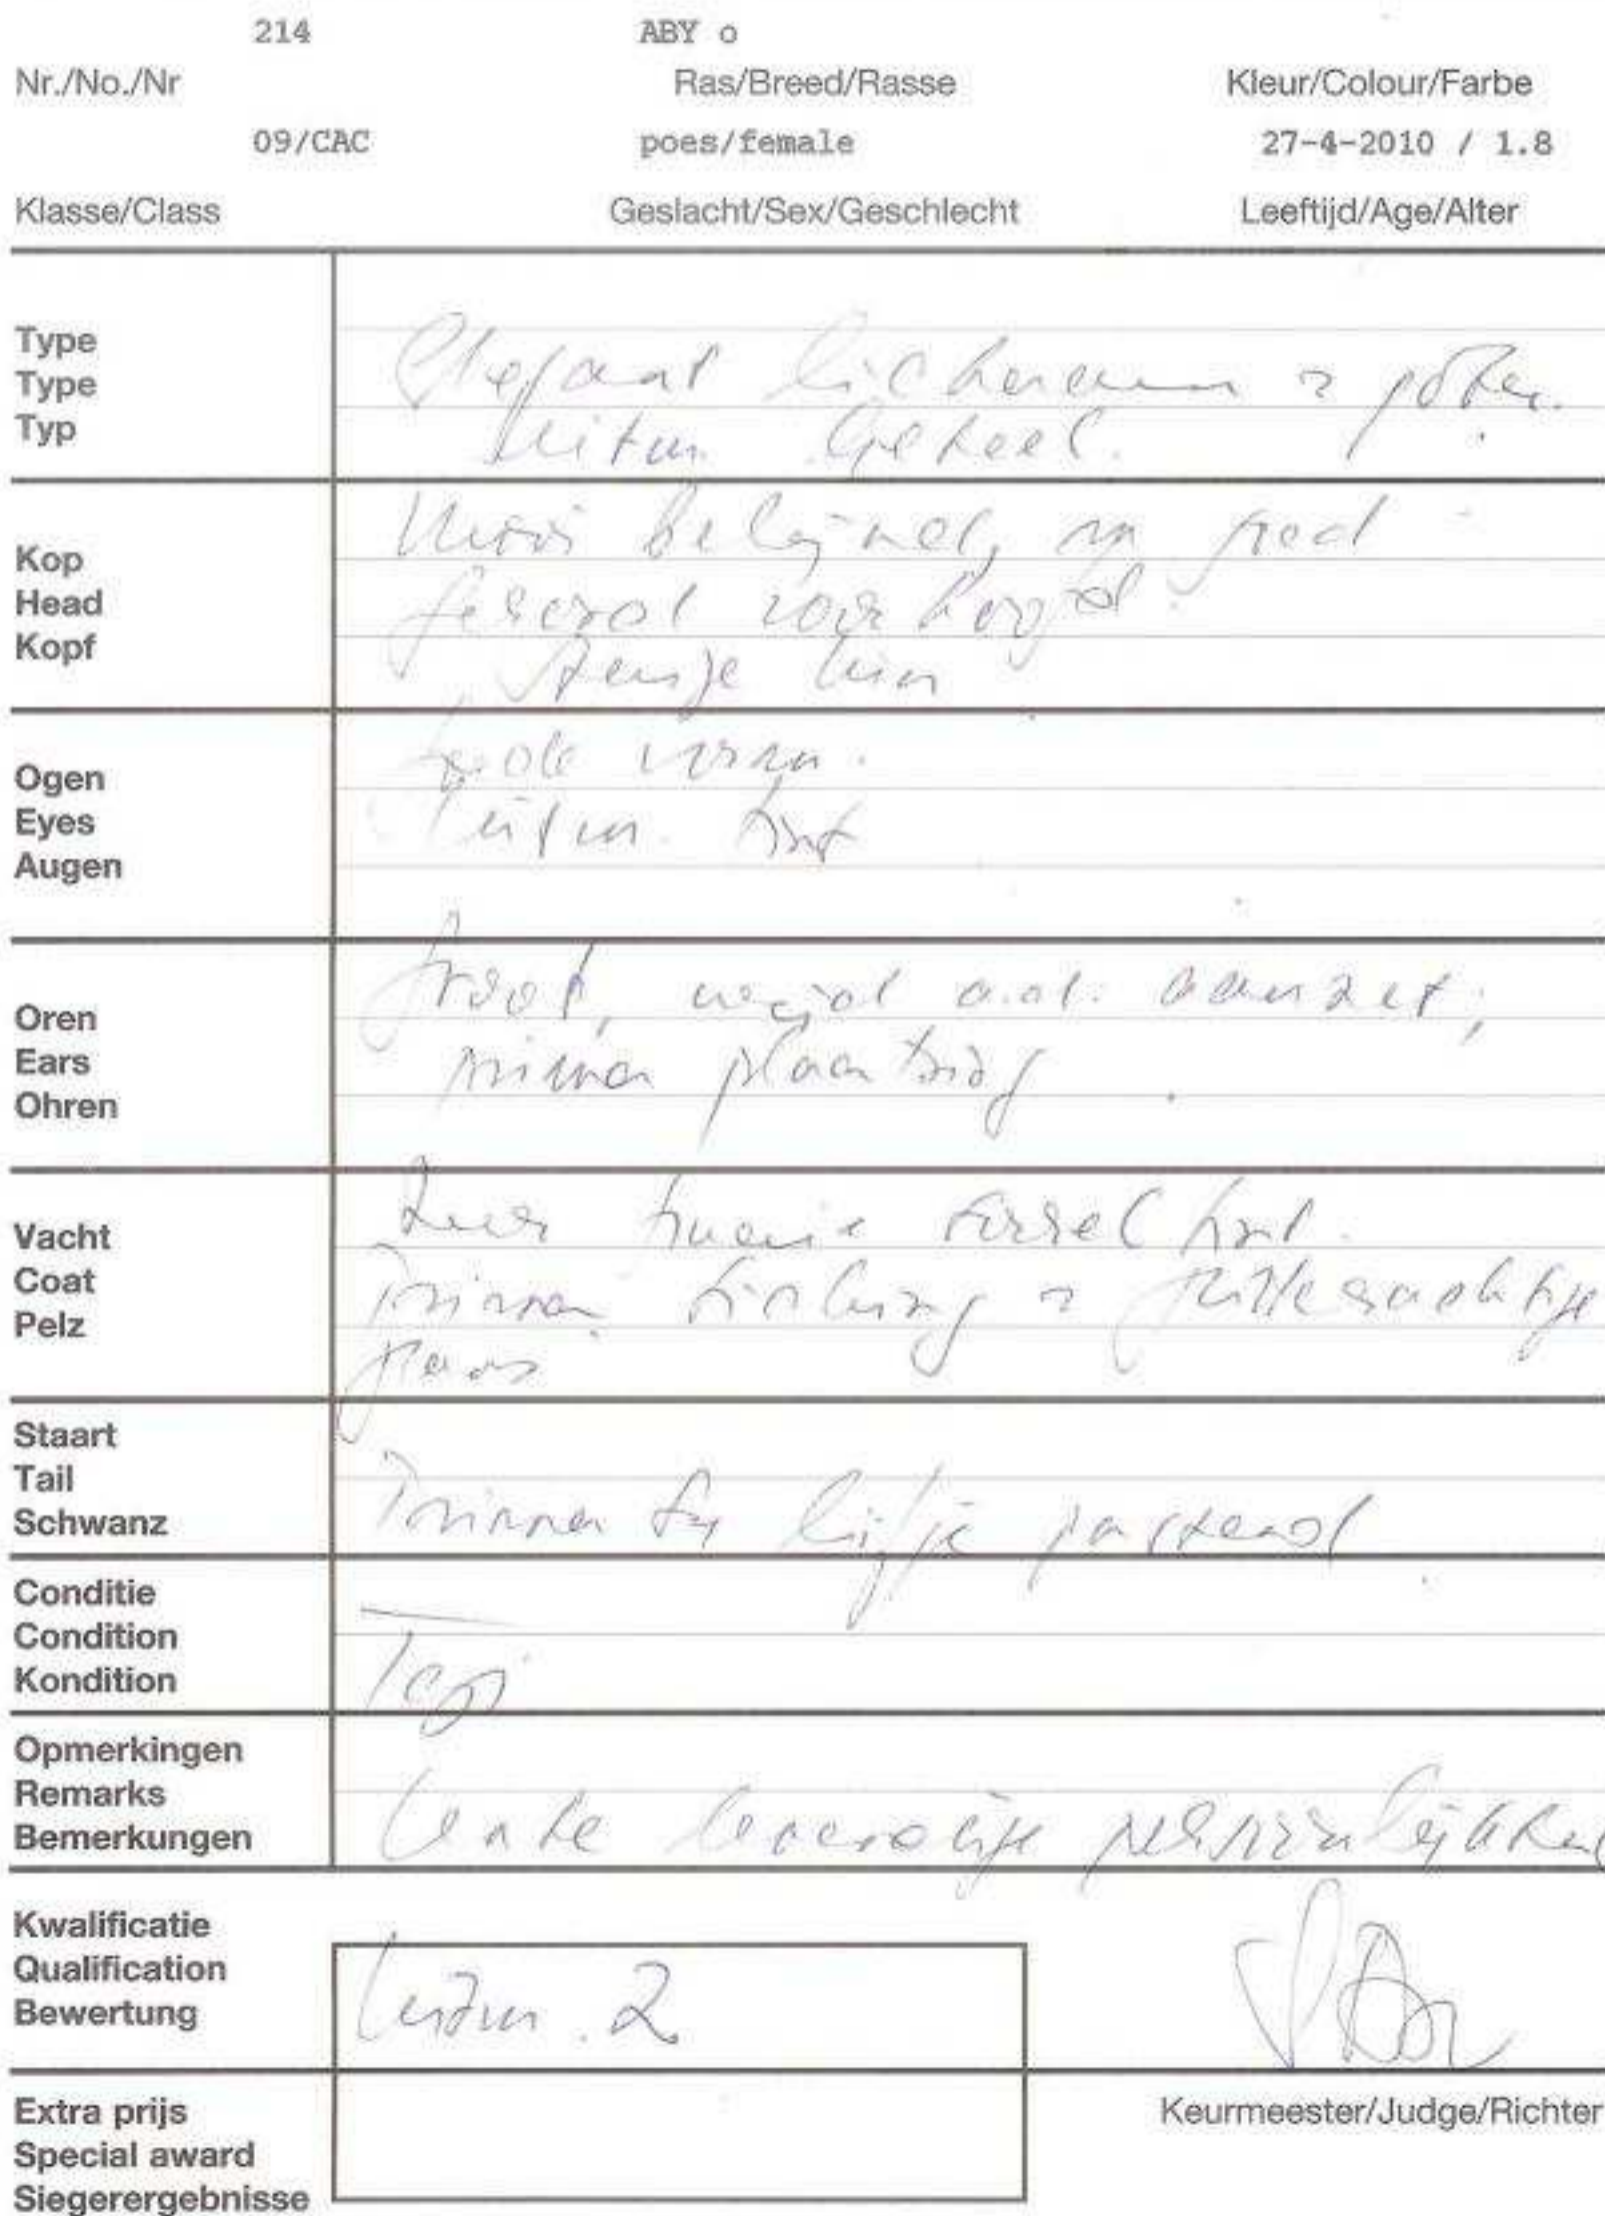 214 ABY o
Nr./No./Nr Ras/Breed/Rasse Kleur/Colour/Farbe
09/CAC poes/female 27-4-2010 / 1.8
Klasse/Class Geslacht/Sex/Geschlecht Leeftijd/Age/Alter
Type
Type
Typ
Elegant lichaam poten.
uitm. geheel.
Kop
Head
Kopf
Mooi belijnd, en goed
gerond voorhoofd.
stevige kin
Ogen
Eyes
Augen
goede vorm.
uitm. tint
Oren
Ears
Ohren
Groot, wijd a.d. aanzet,
prima plaatsing
Vacht
Coat
Pelz
Zeer sorrel tint.
Prima ticking
Staart
Tail
Schwanz
Prima bij lijfje passend
Conditie
Condition
Kondition
Top
Opmerkingen
Remarks
Bemerkungen
Leuke persoonlijkheid
Kwalificatie
Qualification
Bewertung
Uitm. 2
Extra prijs
Special award
Siegerergebnisse
Keurmeester/Judge/Richter